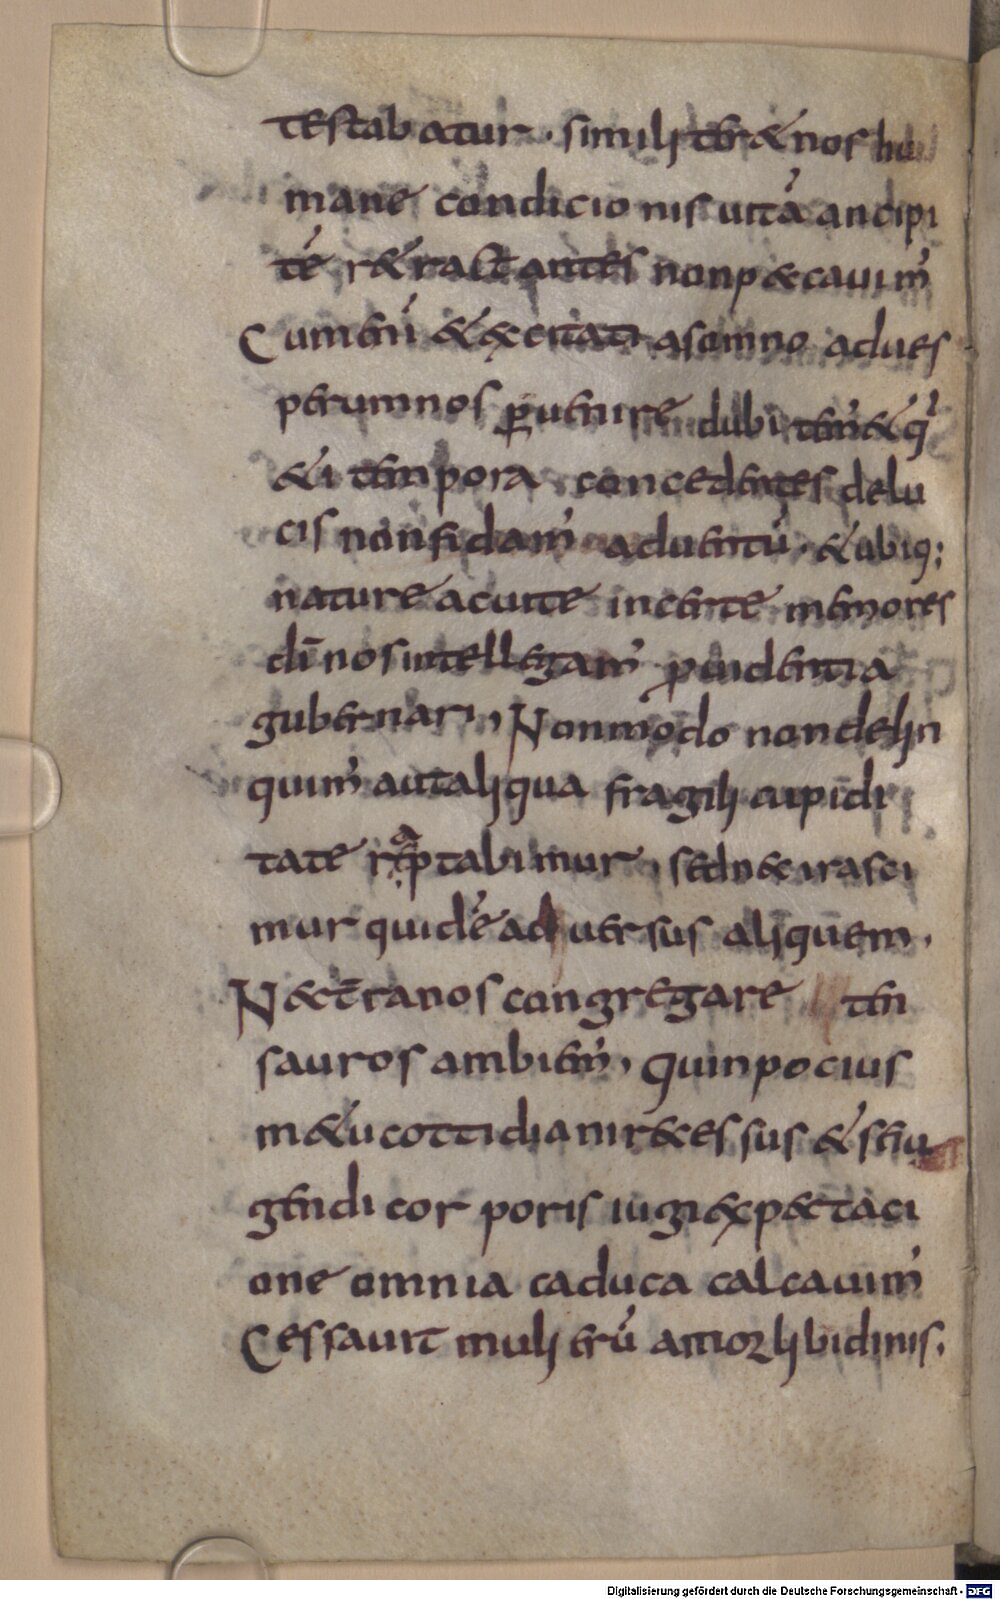 testabatur. similiter & nos hu
mane condicionis uitā ancipi
tē r&ractantes non p&cauim̄
Cum enī & excitati a somno ad ues
perum nos ꝑuenire dubitem̄ & q̄
&i tempora concedentes de lu
cis non fidam̄ aduentū. & ubiq;
nature ac uite incerte memores
dī nos intellegam̄ ꝓuidentia
gubernari, Non modo non delin
quim̄ aut aliqua fragili cupidi
tate reaptabimur, sed nec irasci
mur quidē aduersus aliquem.
Nec t̄ranos congregare ten
sauros ambiem̄, quin pocius
m&u cottidiani r&essus & seiu
gendi corporis iugi expectaci
one omnia caduca calcauim̄
Cessauit mulierū amor libidinis.
Digitalisierung gefördert durch die Deutsche Forschungsgemeinschaft - DFG